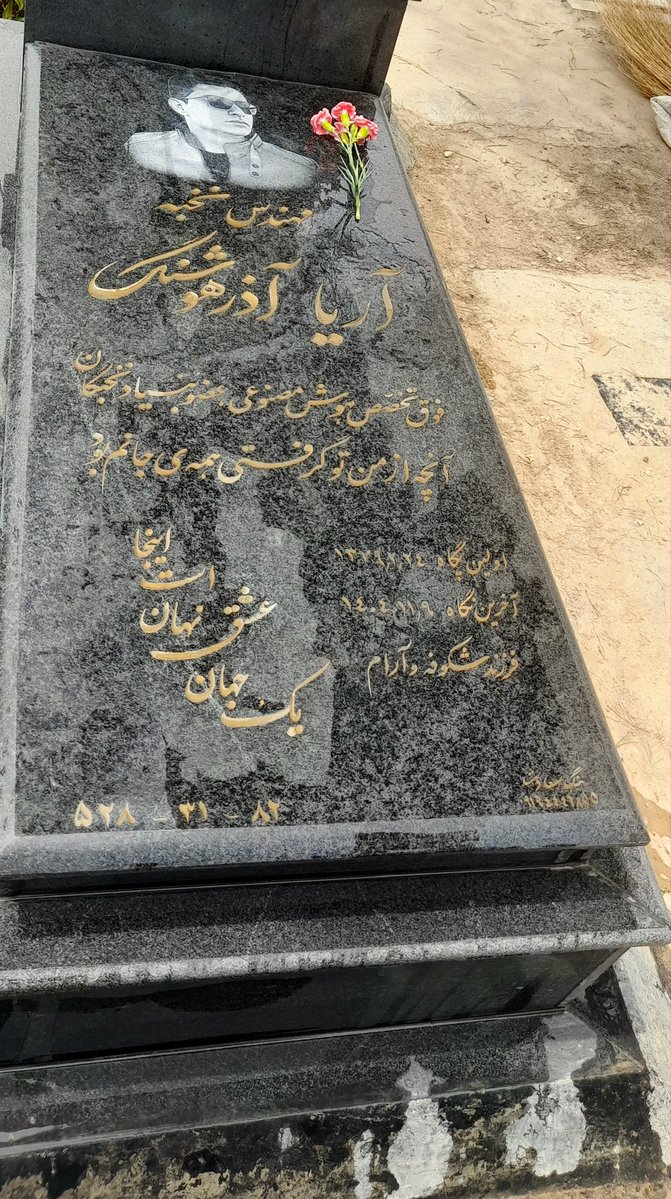 مهندس نخبه
آریا آذرهوشنگ
فوق تخصص هوش مصنوعی عضو بنیاد نخبگان
آنچه از من تو گرفتی همه ی جانم بود
اولین نگاه
آخرین نگاه ۱۴۰۴.۱۱.۹
فرزند شکوفه و آرام
اینجا
است
نهان
عشق
جهان
یک
سنگ
۵۲۸ - ۳۱ - ۸۲